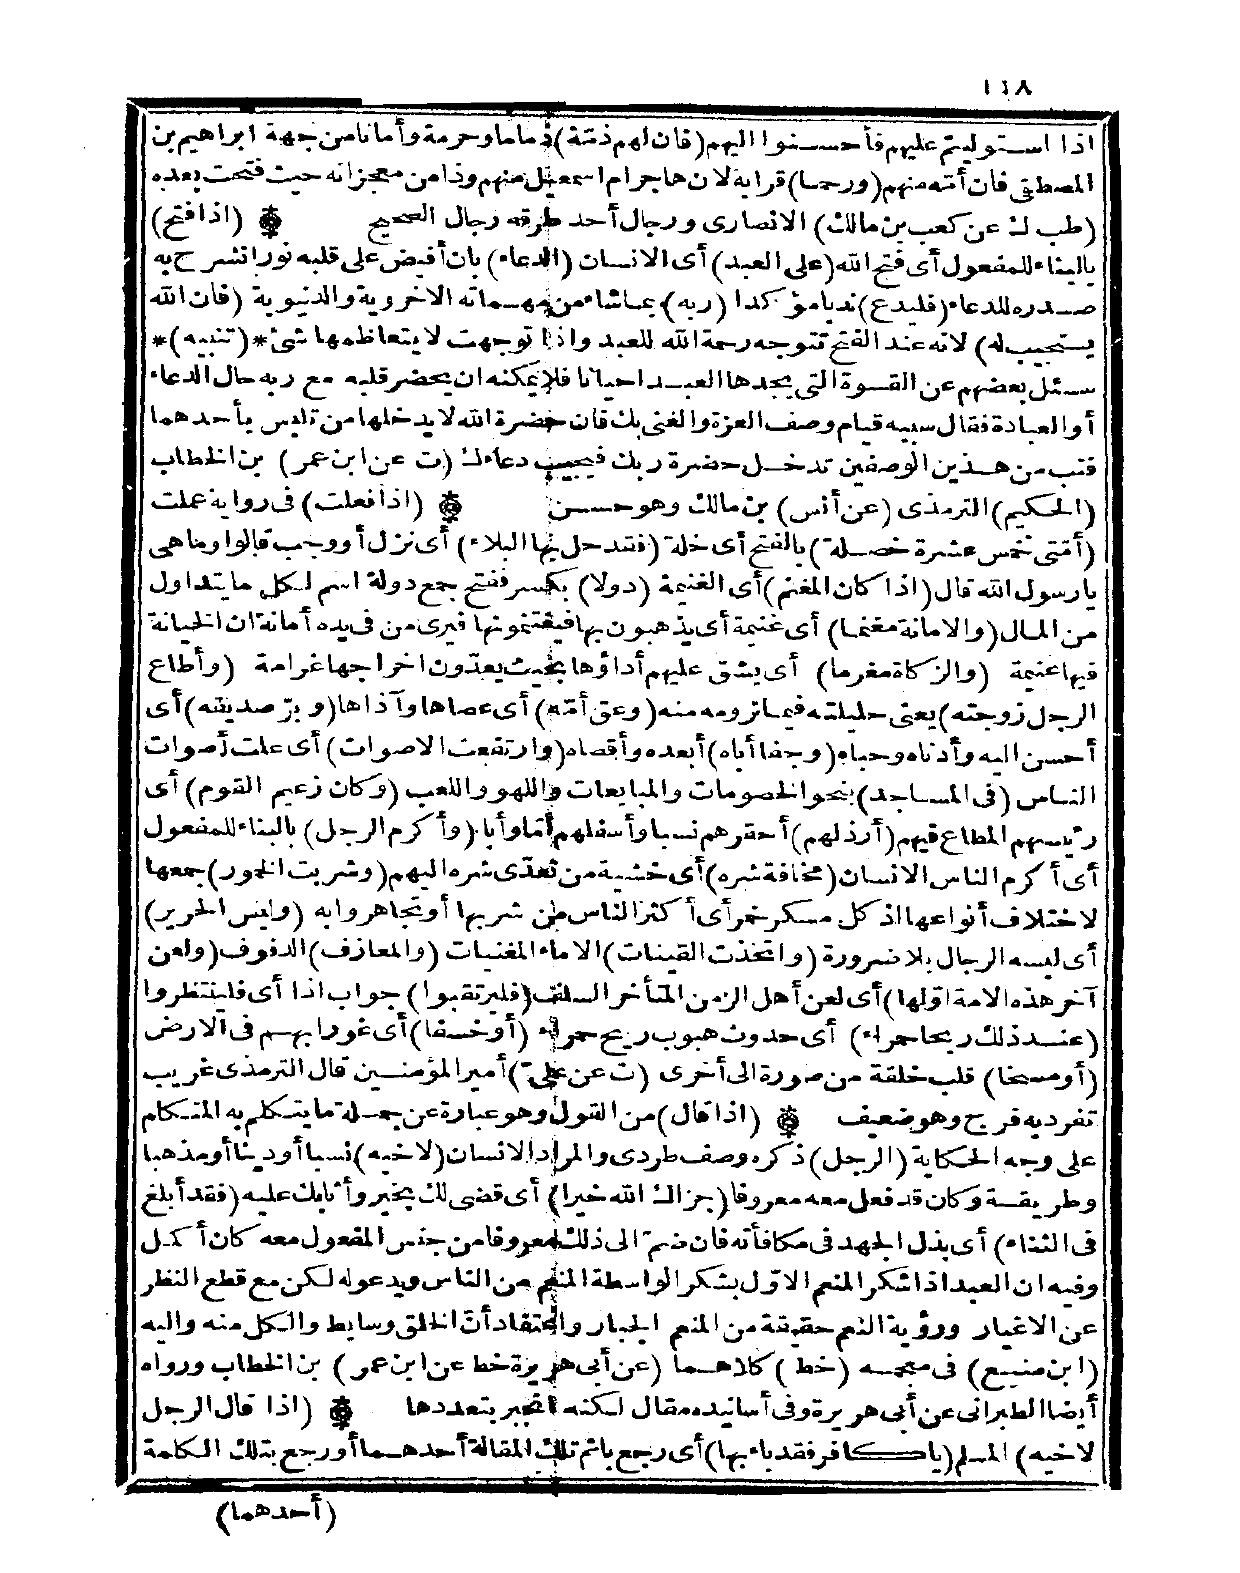 ١١٨
اذا استوليتم عليهم فأحسنوا اليهم (فان لهم ذمّة) ذماما وحرمة وأمانا من جهة ابراهيم بن
المصطفى فان أمّه منهم (ورحما) قرابة لان هاجرام اسمعيل منهم وذا من معجزاته حيث فتحت بعده
(طب ك عن كعب بن مالك) الانصارى ورجال أحد طرقه رجال الصحيح (اذا فتح)
بالبناء للمفعول أى فتح الله (على العبد) أى الانسان (الدعاء) بان أفيض على قلبه نور انشرح به
صدره للدعاء (فليدع) ندبا مؤكدا (ربه) بما شاء من مهماته الاخروية والدنيوية (فان الله
يستجيب له) لانه عند الفتح تتوجه رحمة الله للعبد واذا توجهت لا يتعاظمها شئ *(تنبيه)*
سئل بعضهم عن القسوة التى يجدها العبد احيانا فلا يمكنه ان يحضر قلبه مع ربه حال الدعاء
أو العبادة فقال سببه قيام وصف العزة والغنى بك فان حضرة الله لا يدخلها من تلبس بأحدهما
فتب من هذين الوصفين تدخل حضرة ربك فيجيب دعاءك (ت عن ابن عمر) بن الخطاب
(الحكيم) الترمذى (عن أنس) بن مالك وهو حسن (اذا فعلت) فى رواية عملت
(أمّتى خمس عشرة خصلة) بالفتح أى خلة (فقد حل بها البلاء) أى نزل أو وجب قالوا وما هى
يا رسول الله قال (اذا كان المغنم) أى الغنيمة (دولا) بكسر ففتح جمع دولة اسم لكل ما يتداول
من المال (والامانة مغنما) أى غنيمة أى يذهبون بها فيغتنمونها فيرى من فى يده أمانة ان الخيانة
فيها غنيمة (والزكاة مغرما) أى يشق عليهم أداؤها بحيث يعدّون اخراجها غرامة (وأطاع
الرجل زوجته) يعنى حليلته فيما ترومه منه (وعق أمّه) أى عصاها وآذاها (وبرّ صديقه) أى
أحسن اليه وأدناه وحباه (وجفا أباه) أبعده وأقصاه (وارتفعت الاصوات) أى علت أصوات
الناس (فى المساجد) بنحو الخصومات والمبايعات واللهو واللعب (وكان زعيم القوم) أى
رئيسهم المطاع فيهم (أرذلهم) أحقرهم نسبا وأسفلهم أمّا وأبا (وأكرم الرجل) بالبناء للمفعول
أى أكرم الناس الانسان (مخافة شره) أى خشية من تعدّى شره اليهم (وشربت الخمور) جمعها
لاختلاف أنواعها اذ كل مسكر خمر أى أكثر الناس من شربها أو تجاهروا به (ولبس الحرير)
أى لبسه الرجال بلا ضرورة (واتخذت القينات) الاماء المغنيات (والمعازف) الدفوف (ولعن
آخر هذه الامة اوّلها) أى لعن أهل الزمن المتأخر السلف (فليرتقبوا) جواب اذا أى فلينتظروا
(عند ذلك ريحا حمراء) أى حدوث هبوب ريح حمراء (أو خسفا) أى غورا بهم فى الارض
(أو مسخا) قلب خلقة من صورة الى أخرى (ت عن علىّ) أمير المؤمنين قال الترمذى غريب
تفرد به فرج وهو ضعيف (اذا قال) من القول وهو عبارة عن جملة ما يتكلم به المتكلم
على وجه الحكاية (الرجل) ذكره وصف طردى والمراد الانسان (لاخيه) نسبا أو دينا أو مذهبا
وطريقة وكان قد فعل معه معروفا (جزاك الله خيرا) أى قضى لك بخير وأثابك عليه (فقد أبلغ
فى الثناء) أى بذل الجهد فى مكافأته فان ضمّ الى ذلك معروفا من جنس المفعول معه كان أكمل
وفيه ان العبد اذا شكر المنعم الاوّل يشكر الواسطة المنعم من الناس ويدعو له لكن مع قطع النظر
عن الاغيار ورؤية النعم حقيقة من المنعم الجبار واعتقاد أنّ الخلق وسايط والكل منه واليه
(ابن منيع) فى معجمه (خط) كلاهما (عن أبى هريرة خط عن ابن عمر) بن الخطاب ورواه
أيضا الطبرانى عن أبى هريرة وفى أسانيده مقال لكنه انجبر بتعددها (اذا قال الرجل
لاخيه) المسلم (يا كافر فقد باء بها) أى رجع باثم تلك المقالة أحدهما أو رجع بتلك الكلمة
(أحدهما)